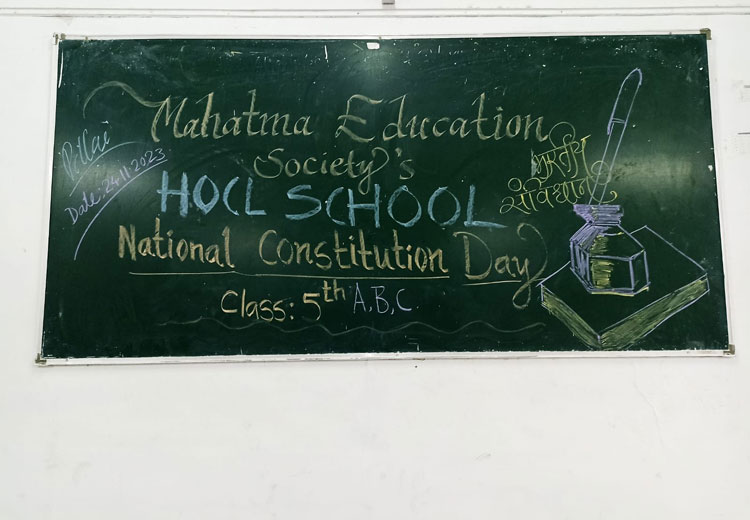 Pillai
Date: 24.11.2023
Mahatma Education
Society's
HOCL SCHOOL
National Constitution Day
Class: 5th A,B,C
भारतीय
संविधान